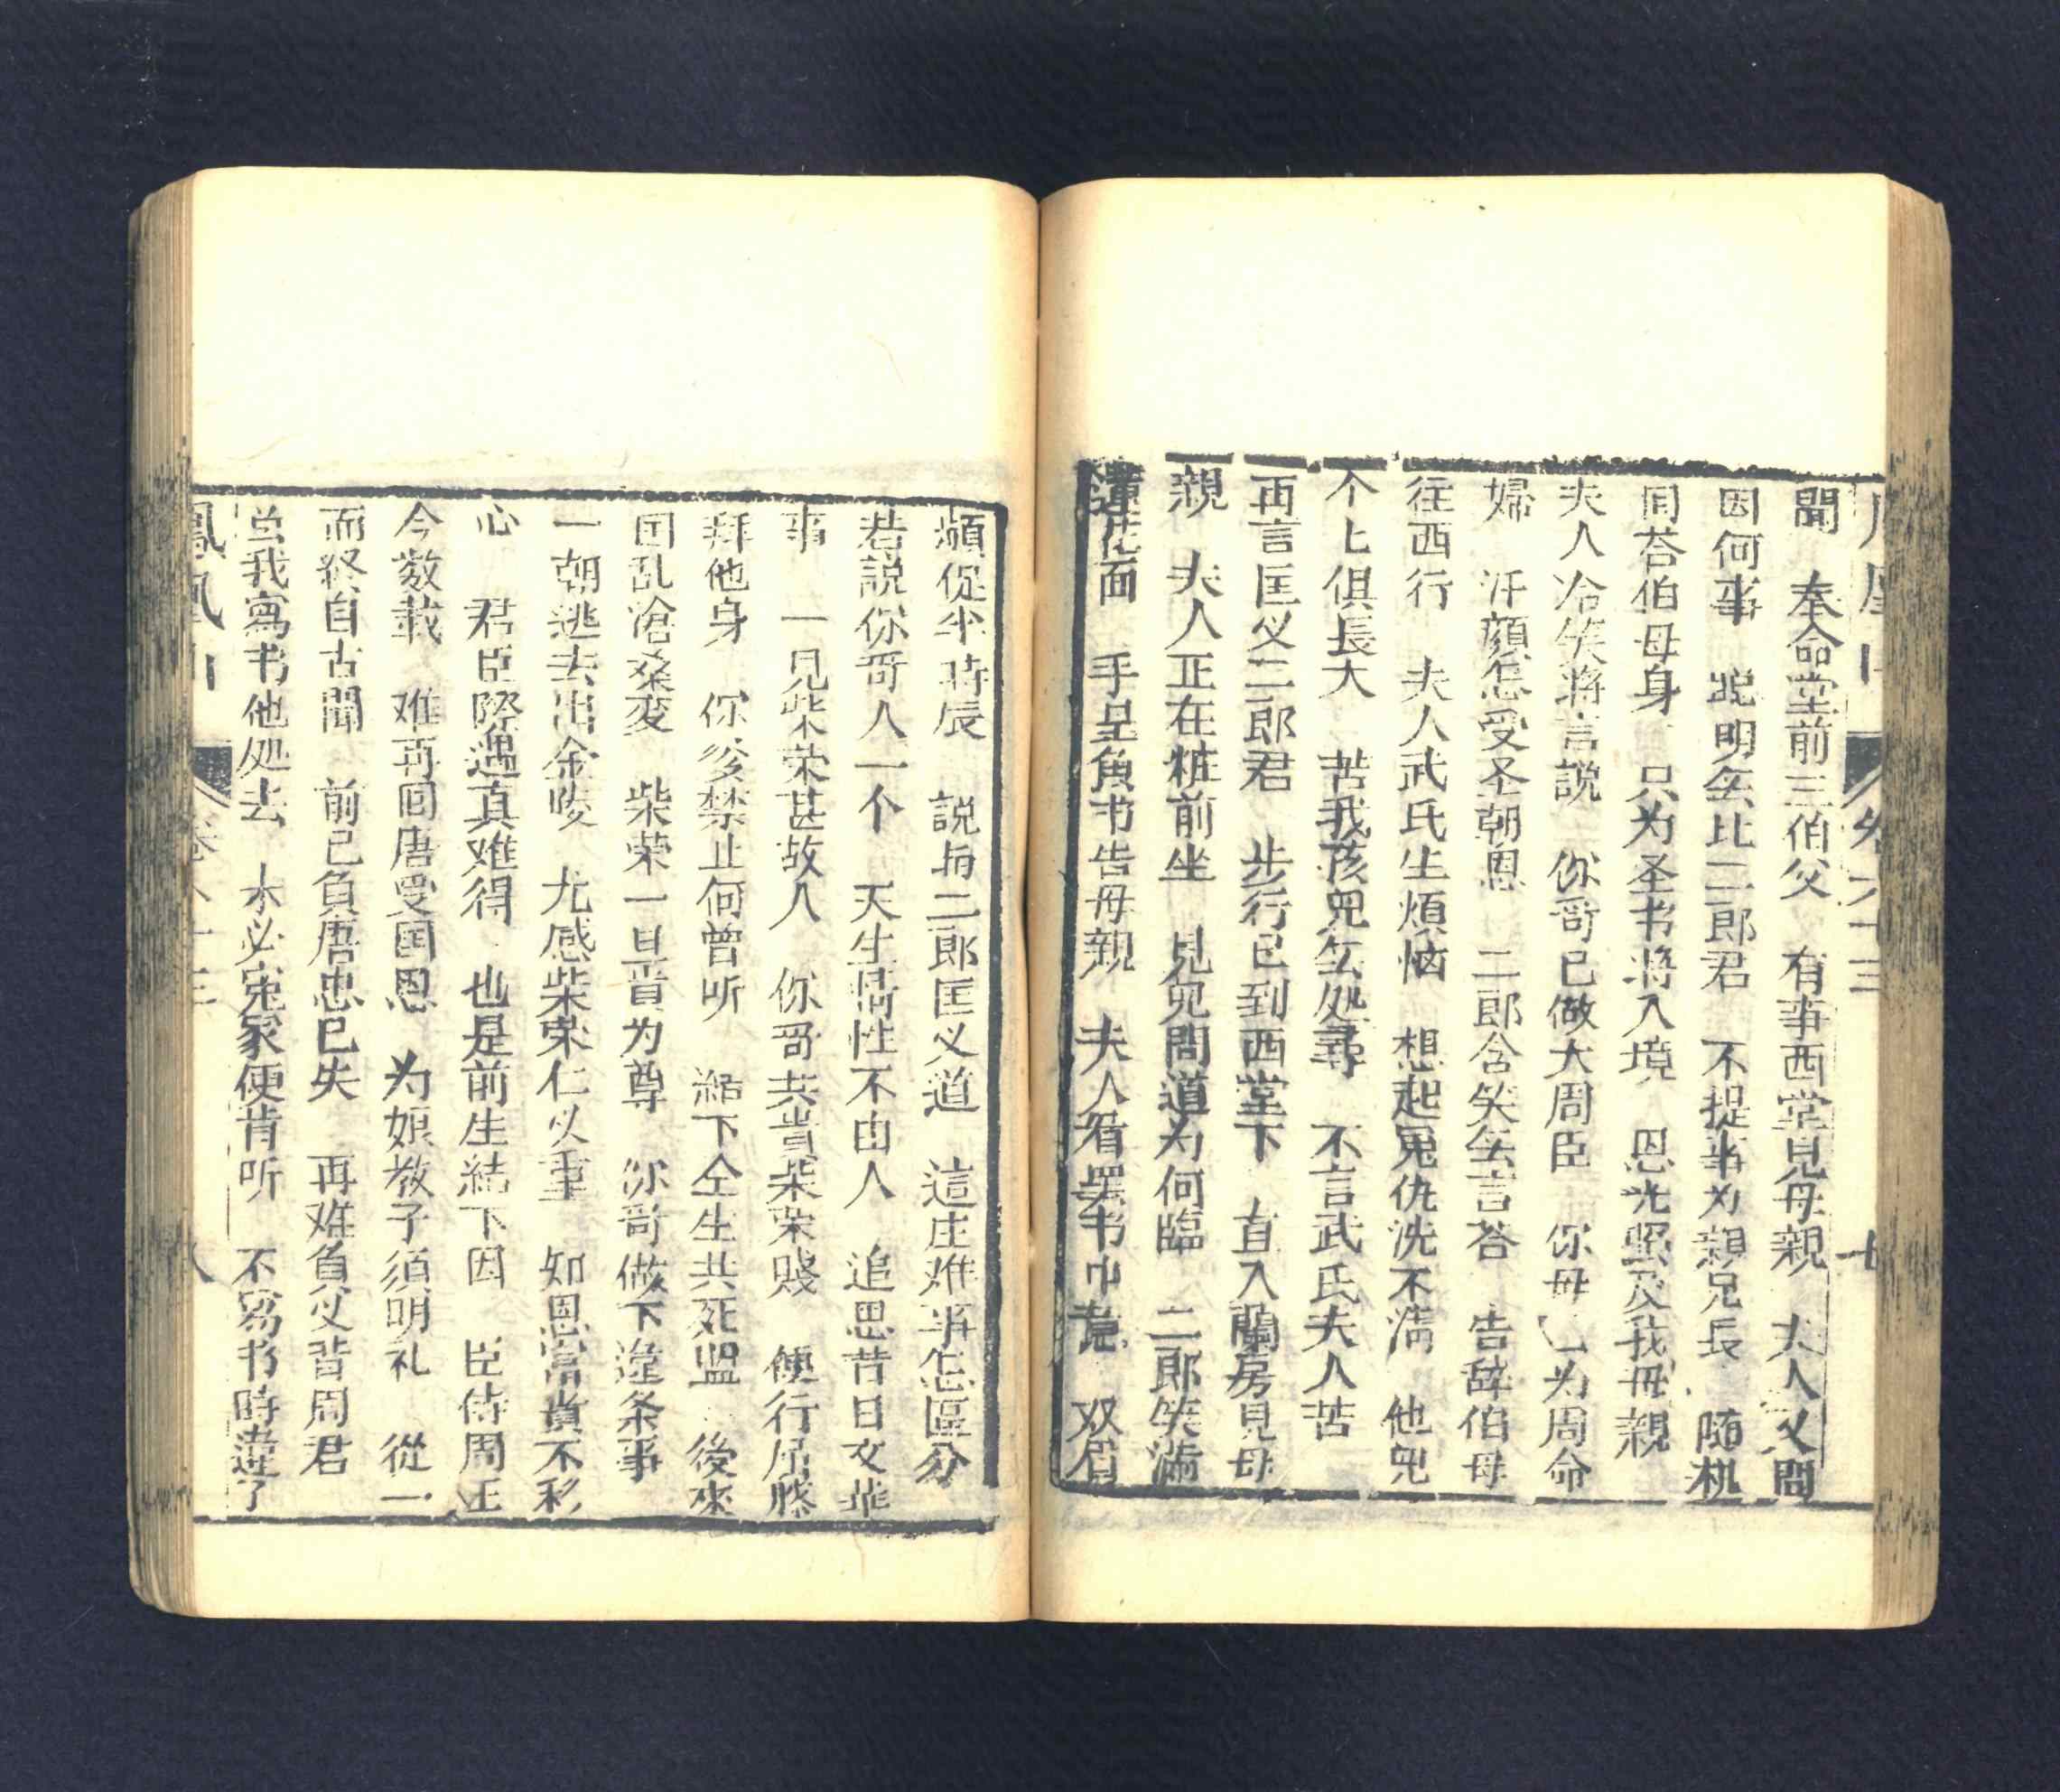 聞 奉命堂前三伯父 有事西堂見母親 夫人又問
因何事 説明䇄比二郎君 不捉事为親兄長 随机
囬荅伯母身 只为圣书将入境 恩光照及我母親
夫人冷笑將言説 你哥已做大周臣 你母已为周命
婦 汗顔怎受圣朝恩 二郎含笑䇄言荅 告辞伯母
往西行 夫人武氏生煩恼 想起冤仇洗不清 他児
不上俱長大 苦我孩児䇄処尋 不言武氏夫人苦
再言匡义二郎君 步行已到西堂下 直入蘭房見母
親 夫人正在粧前坐 見児問道为何臨 二郎笑滿
蓮花面 手呈角书告母親 夫人看罢书中意 双眉
頻促半時辰 説与二郎匡义道 這庄难事怎區分
若説你哥人一个 天生情性不由人 追思昔日文華
事 一見柴荣甚故人 你哥共貴柴荣賤 便行屈膝
拜他身 你爹禁止何曾听 結下仝生共死盟 後來
囯乱滄桑変 柴荣一旦貴为尊 你哥做下逆条事
一朝逃去出金陵 尤感柴荣仁义重 知恩富貴不移
心 君臣際遇真难得 也是前生結下因 臣侍周王
今数載 难再囬唐受囯恩 为娘教子須明礼 從一
而終自古聞 前已負唐忠已失 再难負义背周君
当我寫书他処去 未必冤家便肯听 不寫书時違了
鳳凰山 卷六十三 八